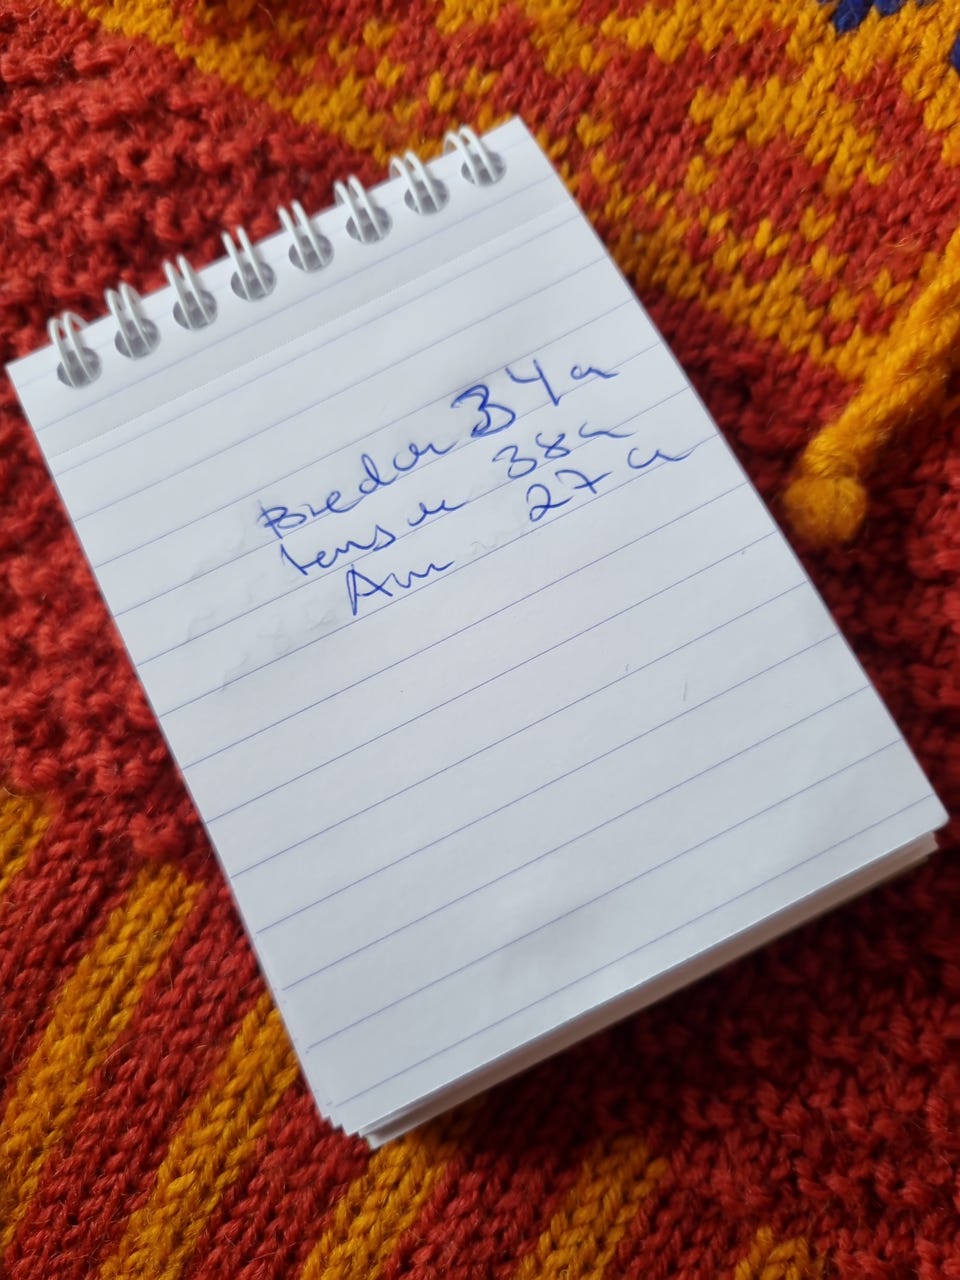 Bredde 34 cm
lengde 38 cm
Arm 27 cm